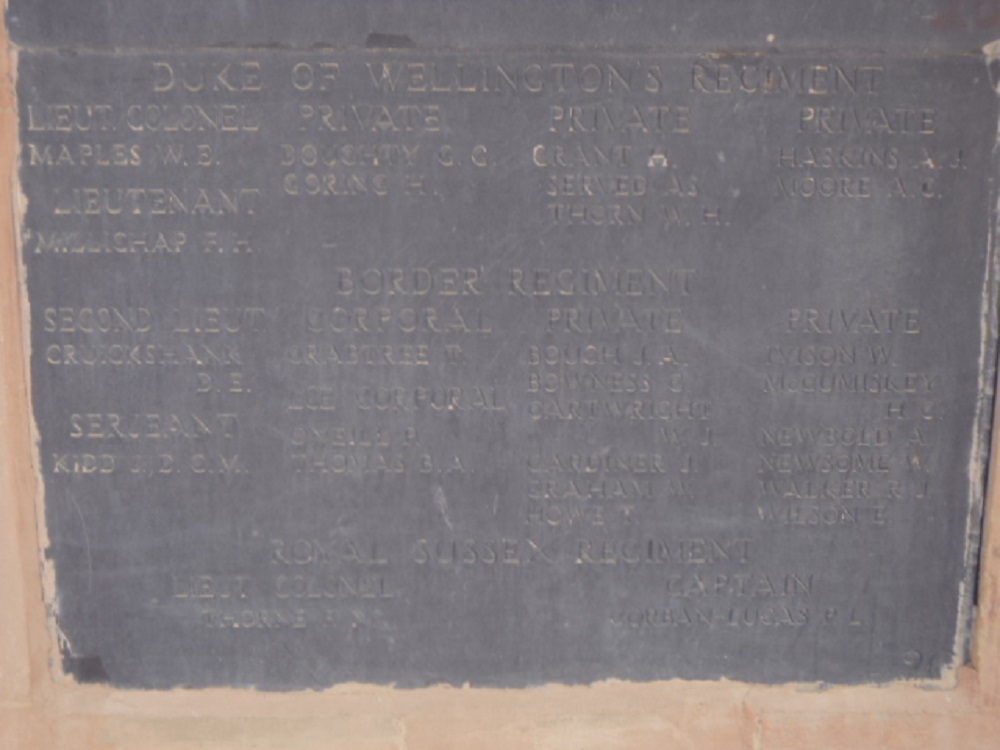 DUKE OF WELLINGTON'S REGIMENT
LIEUT. COLONEL
MAPLES W. E.
LIEUTENANT
MILLICHAP F. H.
PRIVATE
DOUGHTY G. C.
GORING H.
PRIVATE
GRANT H.
SERVED AS
THORN W. H.
PRIVATE
HASKINS A. J.
MOORE A. G.
BORDER REGIMENT
SECOND LIEUT
CRUICKSHANK
D. E.
SERJEANT
KIDD J. D. C. M.
CORPORAL
CRABTREE T.
LCE CORPORAL
O'NEILL P.
THOMAS B. A.
PRIVATE
BOUCH J. A.
BOWNESS G.
CARTWRIGHT
W. J.
GARDINER J.
GRAHAM W.
HOWE
PRIVATE
IVISON W.
McCUMISKEY
H. G.
NEWBOLD A
NEWSOME W.
WALKER R J
WILSON E
ROYAL SUSSEX REGIMENT
LIEUT COLONEL
THORNE
CAPTAIN
CORBAN-LUCAS P L